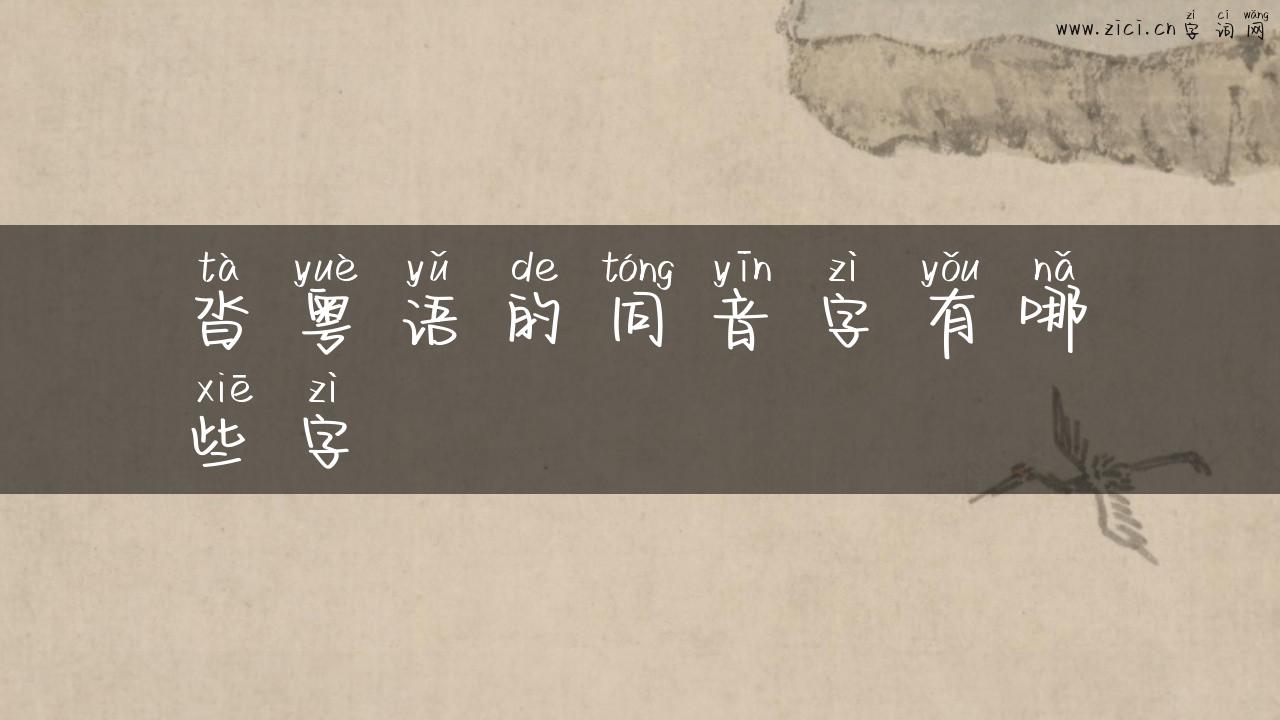 zì cí wǎng
www.zici.cn字词网
tà yuè yǔ de tóng yīn zì yǒu nǎ
沓粤语的同音字有哪
xiē zì
些字